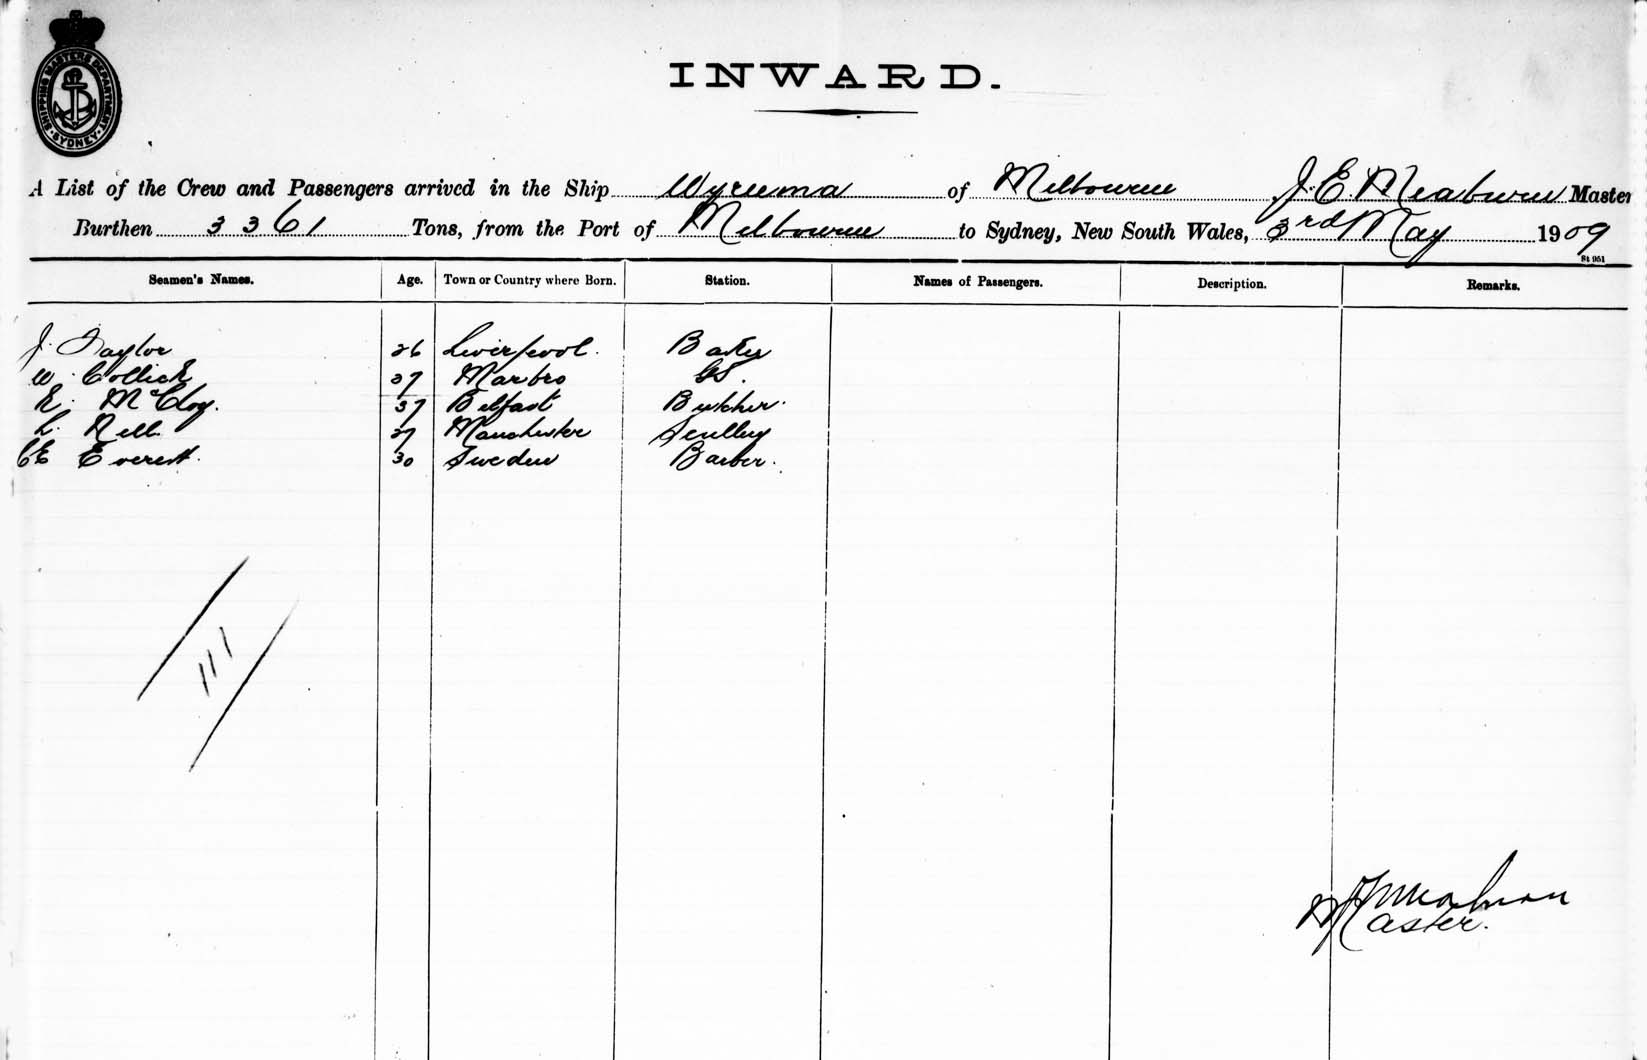 SHIPPING MASTERS DEPARTMENT · SYDNEY ·
INWARD.
A List of the Crew and Passengers arrived in the Ship Wyreema of Melbourne, J. E. Meaburn Master
Burthen 3361 Tons, from the Port of Melbourne to Sydney, New South Wales, 3rd May 1909
St 951
Seamen's Names. Age. Town or Country where Born. Station. Names of Passengers. Description. Remarks.
J. Taylor 26 Liverpool. Baker
W. Collick 27 Marbro GS.
R. McCloy. 37 Belfast Butcher.
L. Nell. 27 Manchester Scullery
CE Everest. 30 Sweden Barber.
111
Meaburn
Master.